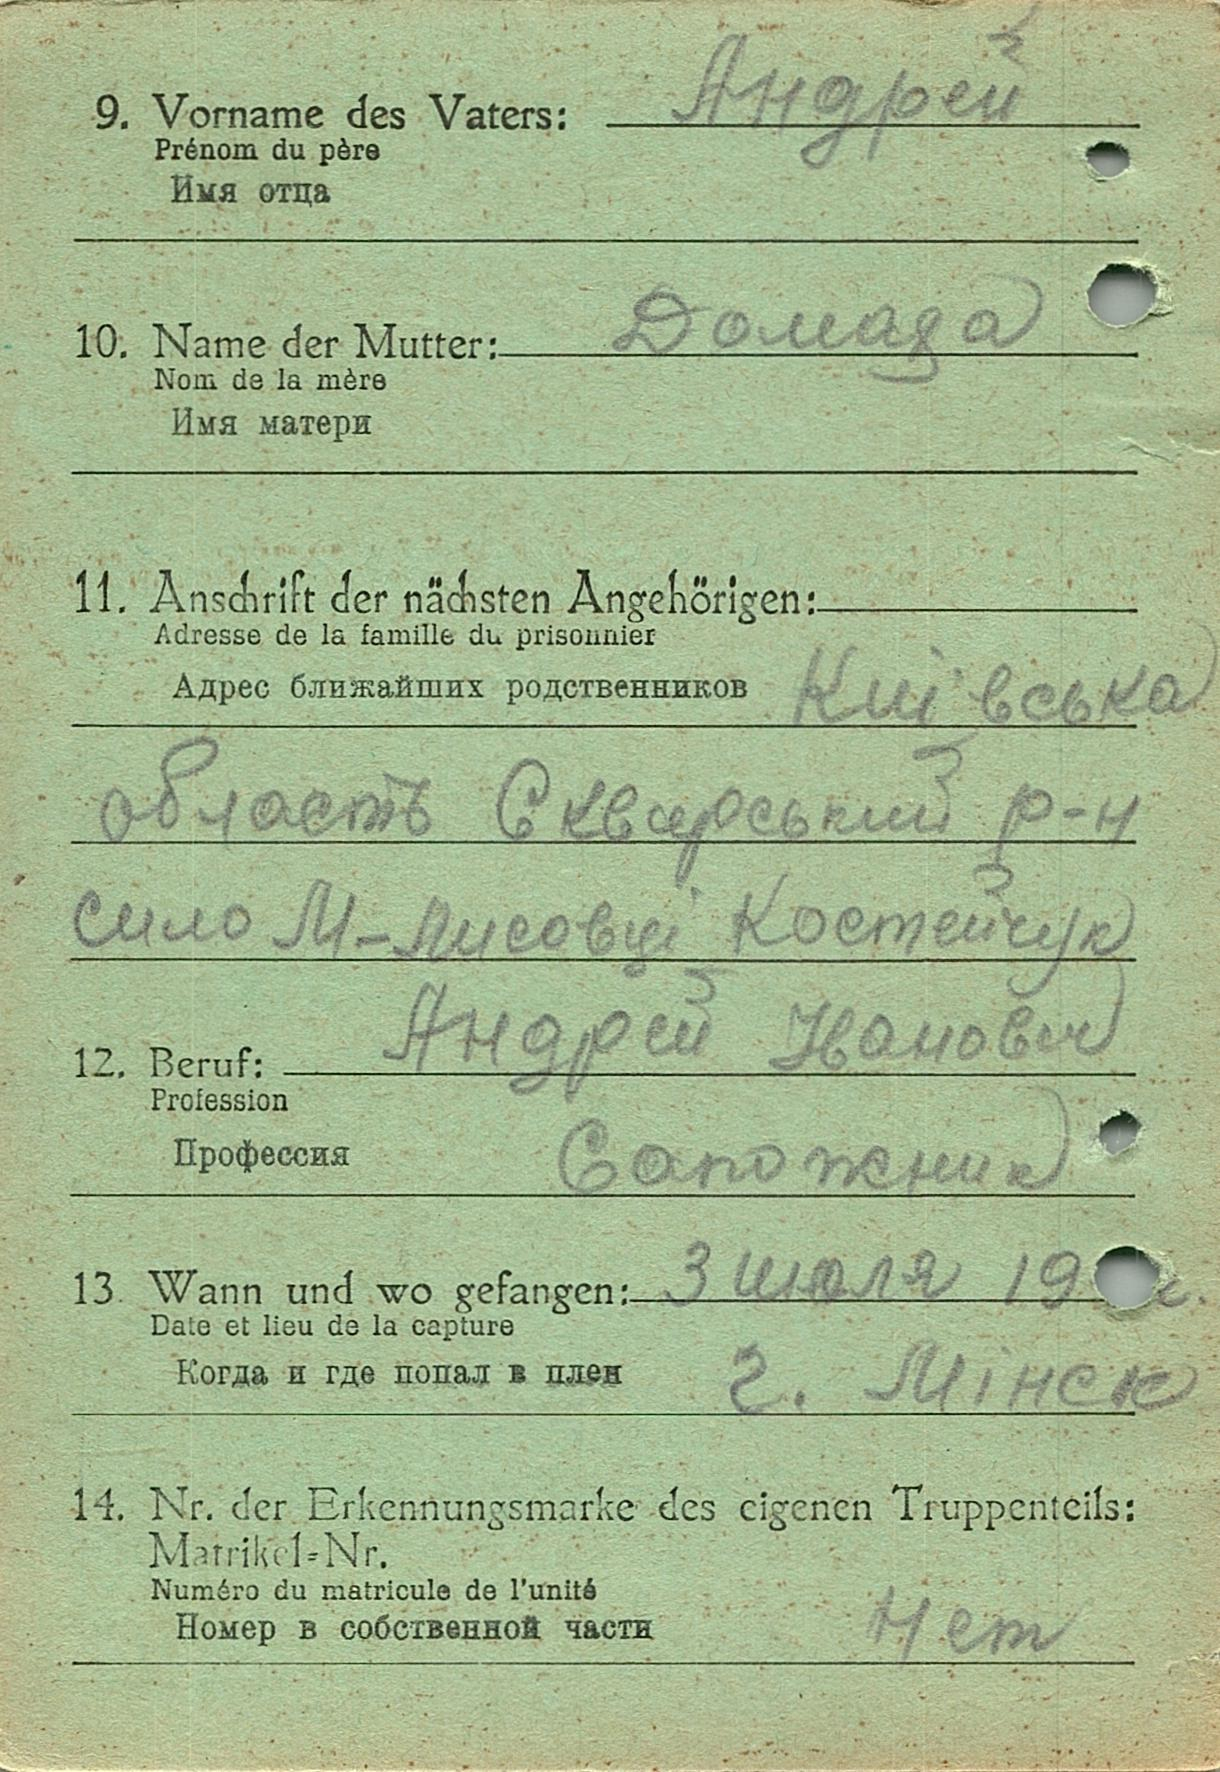 9. Vorname des Vaters: Андрей
Prénom du père
Имя отца
10. Name der Mutter: Домаха
Nom de la mère
Имя матери
11. Anschrift der nächsten Angehörigen:
Adresse de la famille du prisonnier
Адрес ближайших родственников Киівська
область Сквирський р-н
сило М-Лисовці Костейчук
Андрей Іванович
12. Beruf:
Profession
Профессия Сапожник
13 Wann und wo gefangen: 3 июля 19
Date et lieu de la capture
Когда и где попал в плен г. Мінск
14. Nr. der Erkennungsmarke des eigenen Truppenteils:
Matrikel-Nr.
Numéro du matricule de l'unité
Номер в собственной части Нет